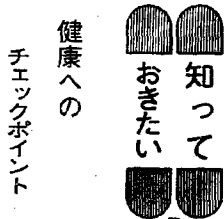 知って
おきたい
健康への
チェックポイント